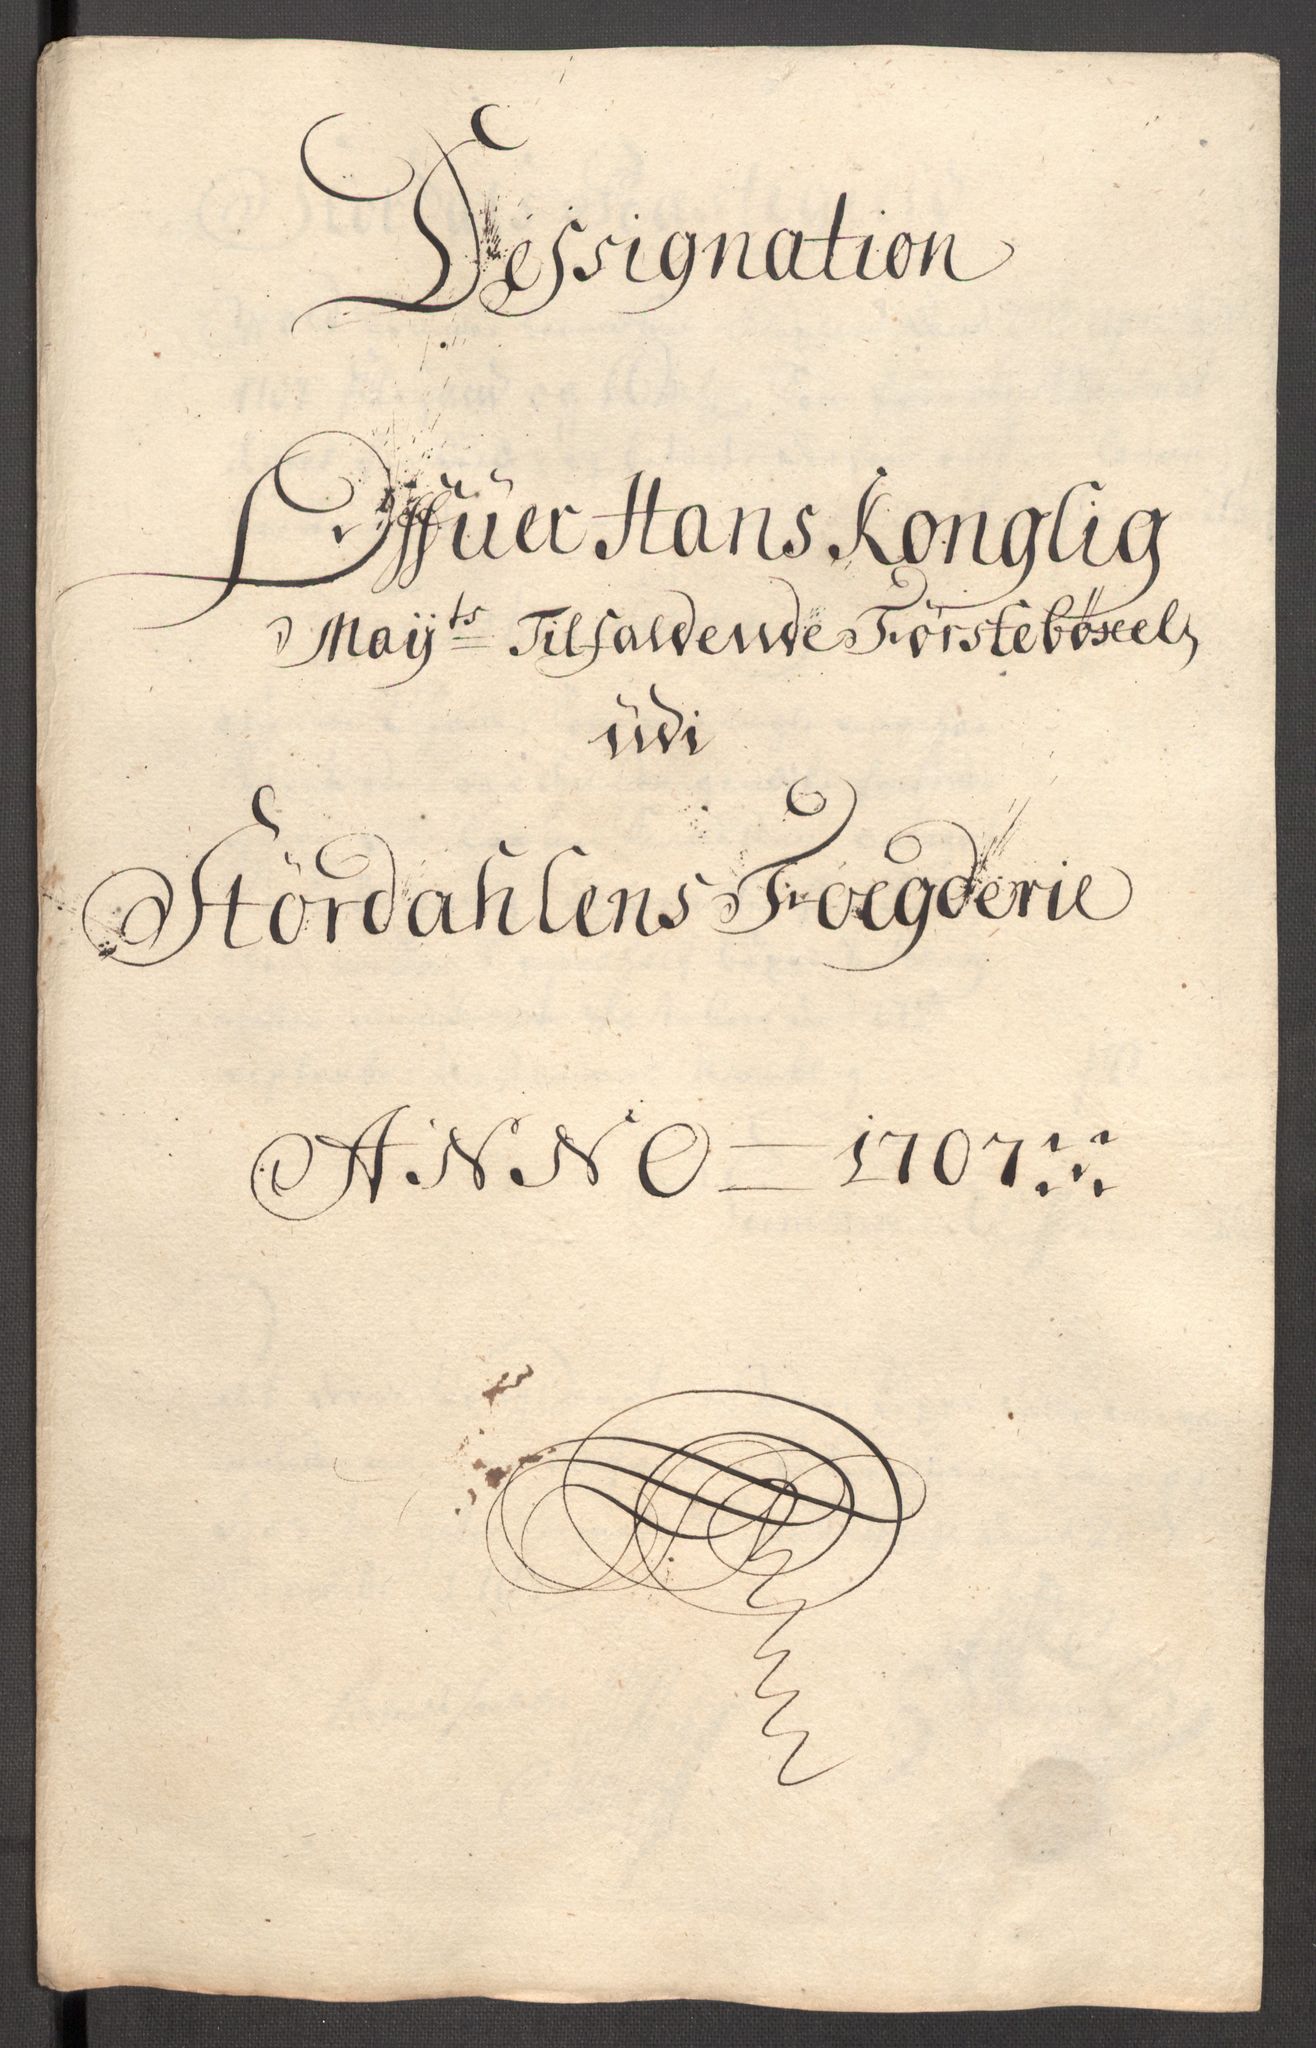 Dessignation
Offüer Hans Konglig
Maÿts Tilfaldende Förstebÿxel
üdi
Stördahlens Foegderie
ANNO = 1707